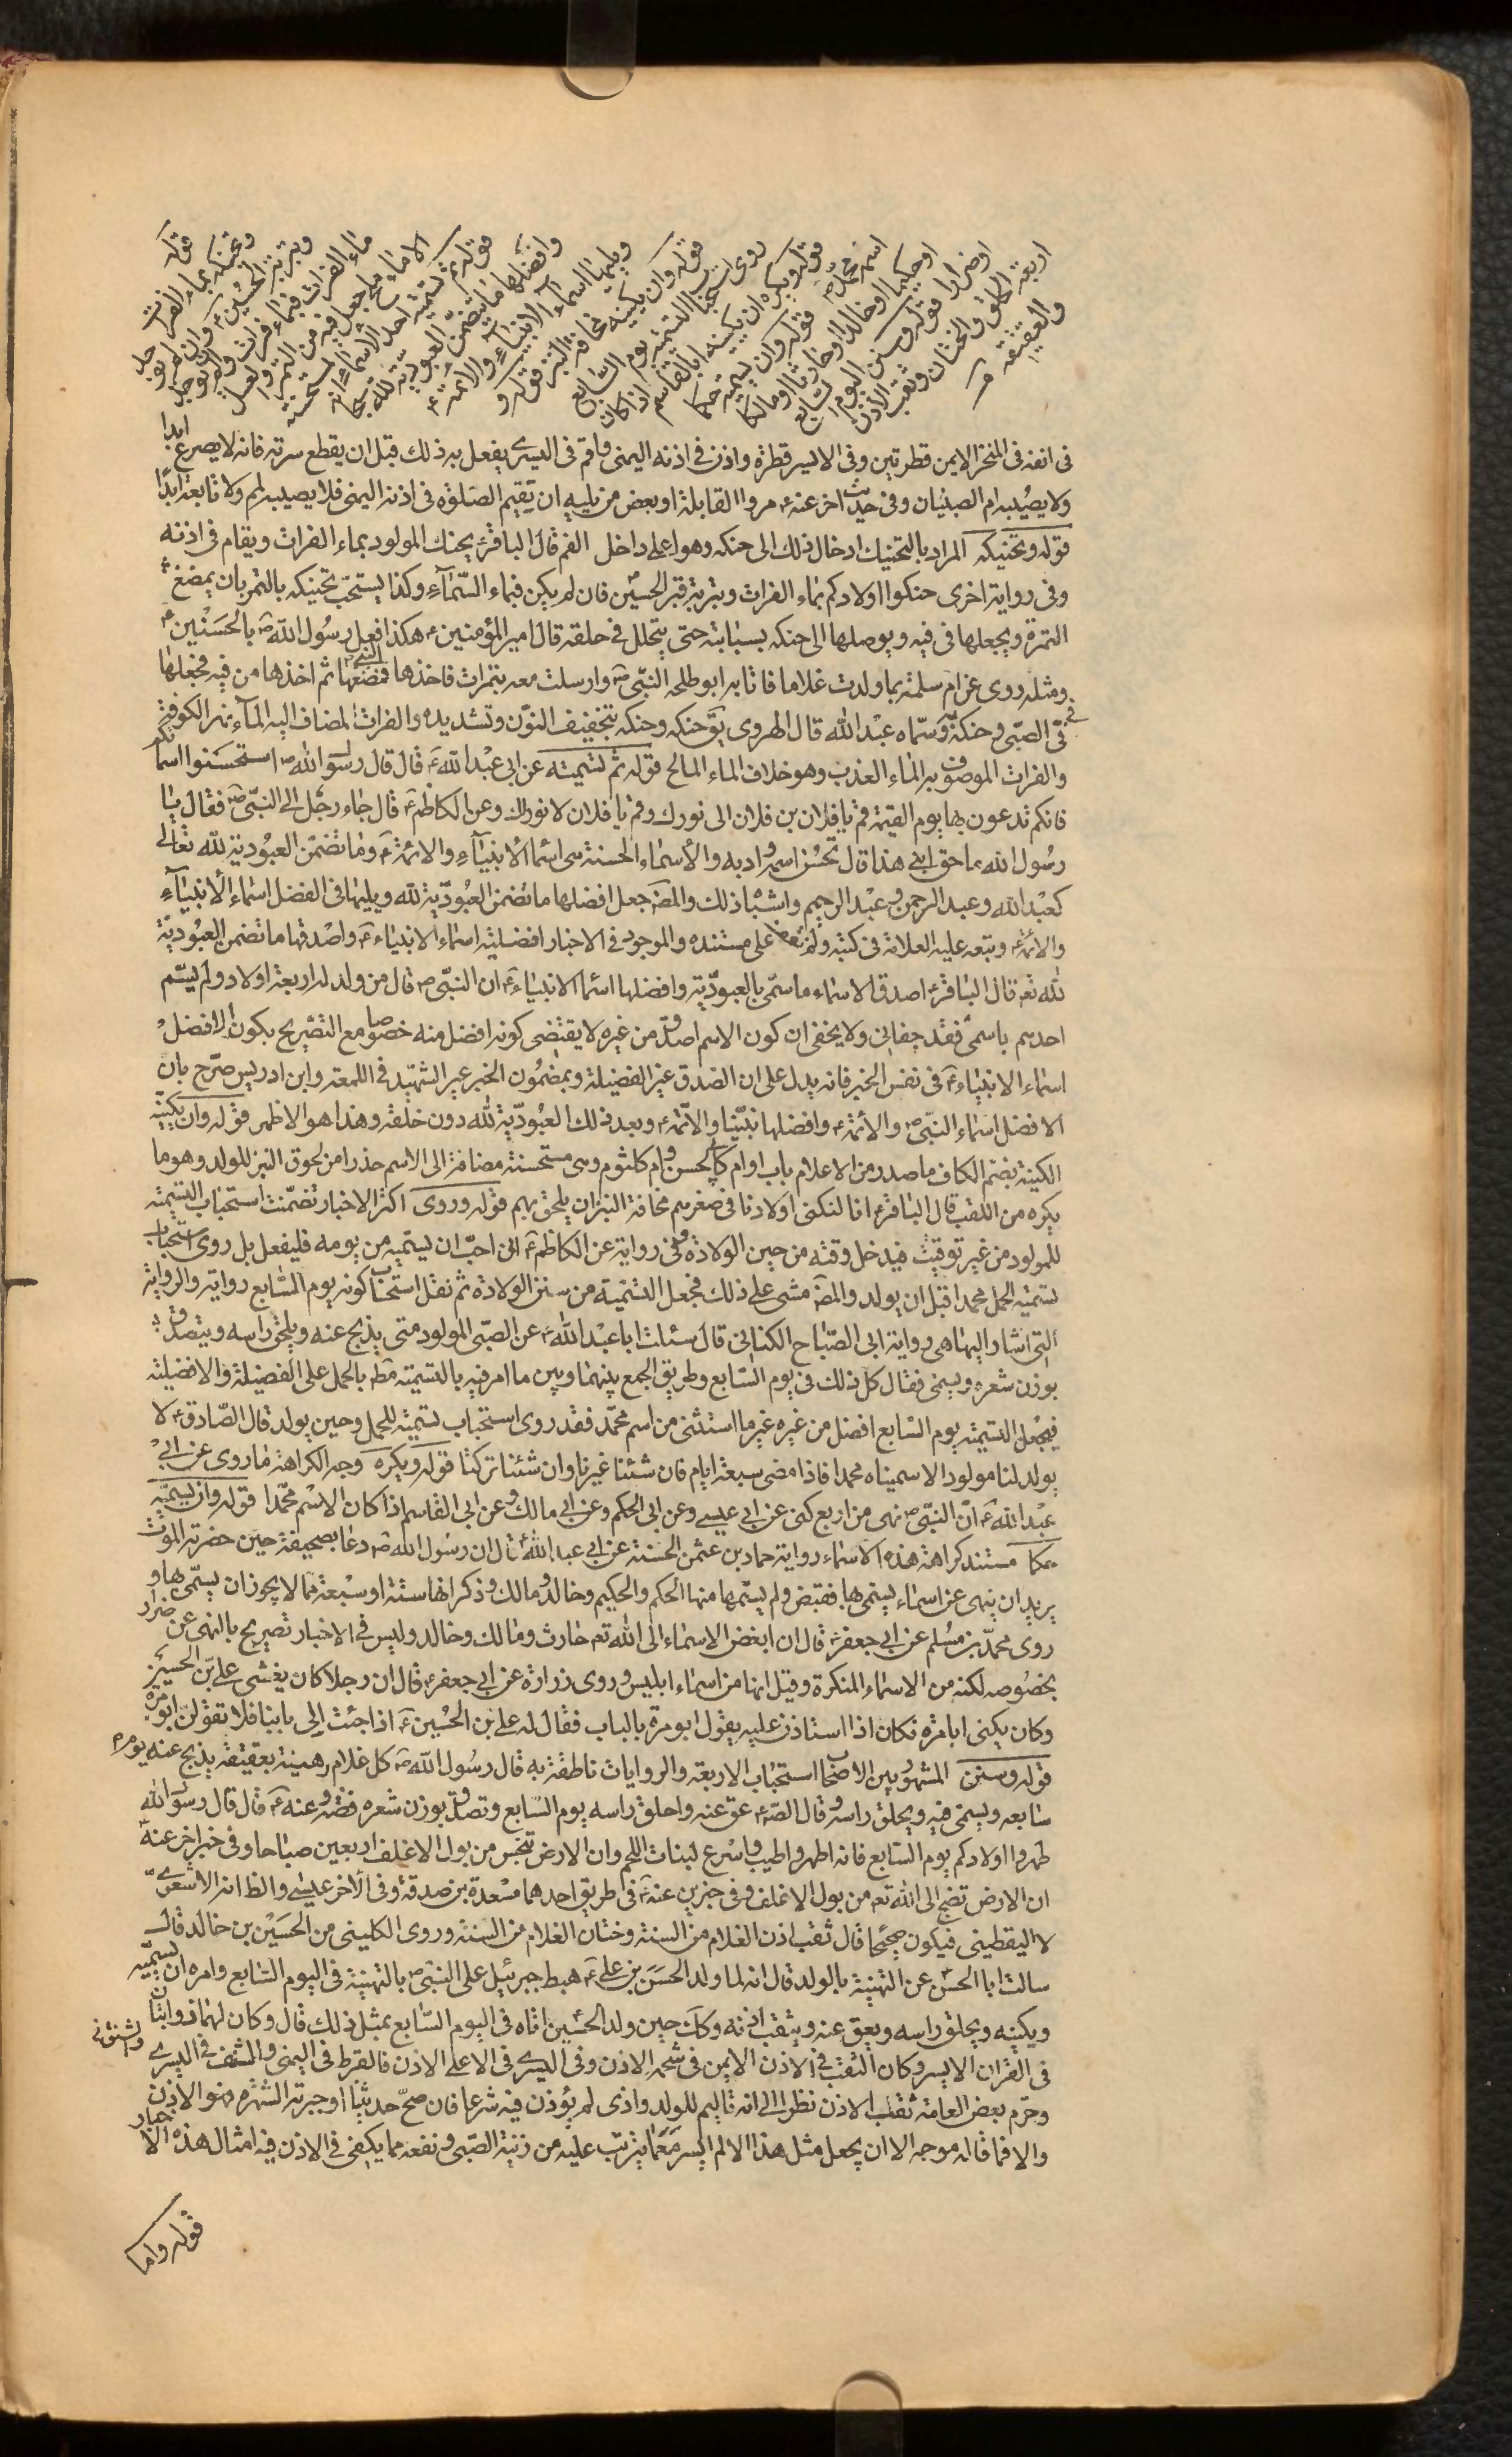 وتحنيكه بماء الفرات
وبتربة الحسين ع وان لم يوجد
ماء الفرات فبماء فرات ولو لم يوجد
الا ماء مالح جعل فيه من التمر والعسل
قوله ثم تسمية احد الأسماء المستحسنة
وافضلها ما يتضمن العبودية لله سبحانه
ويليها اسماء الانبياء والائمة ع
قوله وان يكنيه مخافة النبز قوله و
روى استحباب التسمية يوم السابع
قوله ويكره ان يكنيه ابا القاسم اذا كان
اسمه محمدا قوله وان يسميه حكما
او حكيما او خالدا او حارثا او مالكا
او ضرارا قوله وسنن اليوم السابع
اربعة الحلق والختان وثقب الأذن
والعقيقة
فى انفه فى المنخر الايمن قطرتين وفى الايسر قطرة واذن فى اذنه اليمنى واقم فى اليسرى يفعل به ذلك قبل ان يقطع سرته فانه لا يصرع ابدا
ولا يصيبه ام الصبيان وفى حديث اخر عنه ع مروا القابلة او بعض من يليه ان تقيم الصلوة فى اذنه اليمنى فلا يصيبه لمم ولا تابعة ابدا
قوله وتحنيكه المراد بالتحنيك ادخال ذلك الى حنكه وهو اعلى داخل الفم قال الباقر ع يحنك المولود بماء الفرات ويقام فى اذنه
وفى رواية اخرى حنكوا اولادكم بماء الفرات وبتربة قبر الحسين ع فان لم يكن فبماء السماء وكذا يستحب تحنيكه بالتمر بان يمضغ
التمرة ويجعلها فى فيه ويوصلها الى حنكه بسبابته حتى يتحلل فى حلقه قال امير المؤمنين ع هكذا فعل رسول الله ص بالحسنين ع
ومثله روى عن ام سلمة بما ولدت غلاما فاتا به ابو طلحه النبى ص وارسلت معه بتمرات فاخذها النبى ص فمضغها ثم اخذها من فيه فجعلها
فى فى الصبى وحنكه وسماه عبد الله قال الهروى يق حنكه وحنكه بتخفيف النون وتشديده والفرات المضاف اليه الماء نهر الكوفة
والفرات الموصوف به الماء العذب وهو خلاف الماء المالح قوله ثم تسميته عن ابى عبد الله ع قال قال رسول الله ص استحسنوا اسمائكم
فانكم تدعون بها يوم القيمة قم يا فلان بن فلان الى نورك وقم يا فلان لا نور لك وعن الكاظم ع قال جاء رجل الى النبى ص فقال يا
رسول الله ما حق ابنى هذا قال تحسن اسمه وادبه والأسماء الحسنة هى اسماء الأنبياء والائمة ع وما تضمن العبودية لله تعالى
كعبد الله وعبد الرحمن وعبد الرحيم واشباه ذلك والمص جعل افضلها ما تضمن العبودية لله ويليها فى الفضل اسماء الأنبياء
والأئمة ع وتبعه عليه العلامة فى كتبه ولم نقف على مستنده والموجود فى الاخبار افضلية اسماء الانبياء ع واصدقها ما تضمن العبودية
لله تع قال الباقر ع اصدق الاسماء ما سمى بالعبودية وافضلها اسماء الانبياء ع ان النبى ص قال من ولد له اربعة اولاد ولم يسم
احدهم باسمى فقد جفانى ولا يخفى ان كون الاسم اصدق من غيره لا يقتضى كونه افضل منه خصوصا مع التصريح بكون الافضل
اسماء الانبياء ع فى نفس الخبر فانه يدل على ان الصدق غير الفضيلة وبمضمون الخبر عبر الشهيد فى اللمعة وابن ادريس صرح بان
الافضل اسماء النبى ص والأئمة ع وافضلها نبينا والأئمة ع وبعد ذلك العبودية لله دون خلقه وهذا هو الاظهر قوله وان يكنيه
الكنية بضم الكاف ما صدر من الاعلام باب او ام كابى الحسن وام كلثوم وهى مستحسنة مضافة الى الاسم حذرا من لحوق النبز للولد وهو ما
يكره من اللقب قال الباقر ع انا لنكنى اولادنا فى صغرهم مخافة النبز ان يلحق بهم قوله وروى اكثر الاخبار تضمنت استحباب التسمية
للمولود من غير توقيت فيدخل وقته من حين الولادة وفى رواية عن الكاظم ع ان احب ان يسميه من يومه فليفعل بل روى استحباب
تسمية الحمل محمدا قبل ان يولد والمص مشى على ذلك فجعل التسمية من سنن الولادة ثم نقل استحباب كونه يوم السابع رواية والرواية
التى اشار اليها هى رواية ابى الصباح الكنانى قال سئلت ابا عبد الله ع عن الصبى المولود متى يذبح عنه ويحلق راسه ويتصدق
بوزن شعره ويسمى فقال كل ذلك فى يوم السابع وطريق الجمع بينهما وبين ما امر فيه بالتسمية مطـ بالحمل على الفضيلة والافضلية
فيجعل التسمية يوم السابع افضل من غيره غير ما استثنى من اسم محمد فقد روى استحباب تسمية للحمل وحين يولد قال الصادق ع لا
يولد لنا مولود الا سميناه محمدا فاذا مضى سبعة ايام فان شئنا غيرنا وان شئنا تركنا قوله ويكره وجه الكراهة ما روى عن ابى
عبد الله ع ان النبى ص نهى من اربع كنى عن ابى عيسى وعن ابى الحكم وعن ابى مالك وعن ابى القاسم اذا كان الاسم محمدا قوله وان يسميه
حكما مستند كراهة هذه الاسماء رواية حماد بن عثمن الحسنة عن ابى عبد الله ع قال ان رسول الله ص دعا بصحيفة حين حضرته الموت
يريد ان ينهى عن اسماء يسمى بها فقبض ولم يسمها منها الحكم والحكيم وخالد ومالك وذكر انها ستة او سبعة مما لا يجوز ان يسمى بها و
روى محمد بن مسلم عن ابى جعفر ع قال ان ابغض الاسماء الى الله تع حارث ومالك وخالد وليس فى الاخبار تصريح بالنهى عن ضرار
بخصوصه لكنه من الاسماء المنكرة وقيل انها من اسماء ابليس وروى زرارة عن ابى جعفر ع قال ان رجلا كان يغشى على بن الحسين ع
وكان يكنى ابا مرة فكان اذا استاذن عليه يقول ابو مرة بالباب فقال له على بن الحسين ع اذا جئت الى بابنا فلا تقولن ابو مرة
قوله وسنن المشهور بين الاصحاب استحباب الاربعة والروايات ناطقة به قال رسول الله ص كل غلام رهينة بعقيقة يذبح عنه يوم
سابعه ويسمى فيه ويحلق راسه وقال الص ع عق عنه واحلق راسه يوم السابع وتصدق بوزن شعره فضة وعنه ع قال قال رسول الله
طهروا اولادكم يوم السابع فانه اطهر واطيب واسرع لنبات اللحم وان الارض تنجس من بول الاغلف اربعين صباحا وفى خبر اخر عنه
ان الارض تضج الى الله تع من بول الاغلف وفى خبرين عنه ع فى طريق احدهما مسعدة بن صدقة وفى الأخر عيسى والظ انه الاشعرى
لا اليقطينى فيكون صحيحا قال ثقب اذن الغلام من السنة وختان الغلام من السنة وروى الكلينى من الحسين بن خالد قال
سالت ابا الحسن ع عن التهنية بالولد قال انه لما ولد الحسن بن على ع هبط جبرئيل على النبى ص بالتهنية فى اليوم السابع وامره ان يسميه
ويكنيه ويحلق راسه ويعق عنه ويثقب اذنه وكك حين ولد الحسين ع اتاه فى اليوم السابع بمثل ذلك قال وكان لهما ذوابتان
فى القرن الايسر وكان الثقب فى الاذن الايمن فى شحمه الاذن وفى اليسرى فى الاعلى الاذن فالقرط فى اليمنى والشنف فى اليسرى
وحرم بعض العامة ثقب الاذن نظرا الى انه تاليم للولد واذى لم يؤذن فيه شرعا فان صح حديثنا او جبرته الشهرة فهو الاذن
والا فما قاله موجه الا ان يجعل مثل هذا الالم اليسير مع ما يترتب عليه من زينة الصبى ونفعه مما يكفى فى الاذن فيه امثال هذه الاخبار
قوله واما